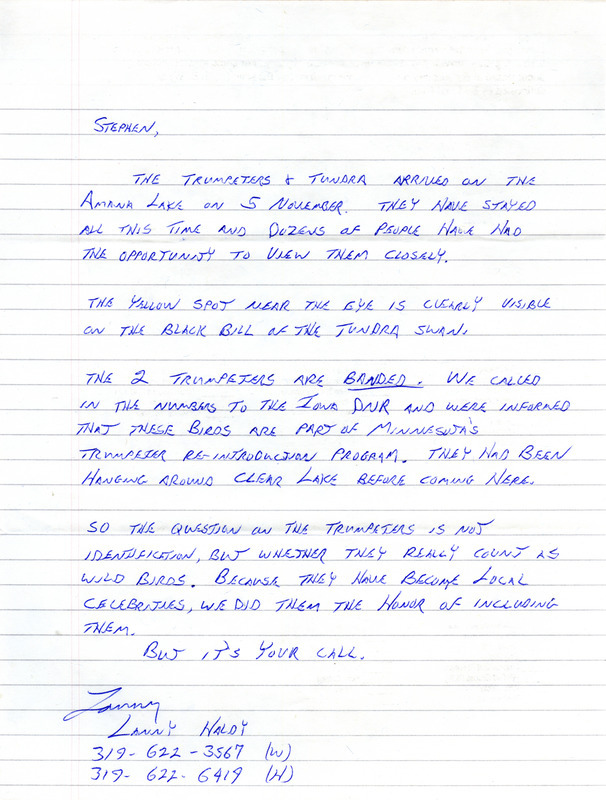 STEPHEN,
THE TRUMPETERS & TUNDRA ARRIVED ON THE
AMANA LAKE ON 5 NOVEMBER. THEY HAVE STAYED
ALL THIS TIME AND DOZENS OF PEOPLE HAVE HAD
THE OPPORTUNITY TO VIEW THEM CLOSELY.
THE YELLOW SPOT NEAR THE EYE IS CLEARLY VISIBLE
ON THE BLACK BILL OF THE TUNDRA SWAN.
THE 2 TRUMPETERS ARE BANDED. WE CALLED
IN THE NUMBERS TO THE IOWA DNR AND WERE INFORMED
THAT THESE BIRDS ARE PART OF MINNESOTA'S
TRUMPETER RE-INTRODUCTION PROGRAM. THEY HAD BEEN
HANGING AROUND CLEAR LAKE BEFORE COMING HERE.
SO THE QUESTION ON THE TRUMPETERS IS NOT
IDENTIFICATION, BUT WHETHER THEY REALLY COUNT AS
WILD BIRDS. BECAUSE THEY HAVE BECOME LOCAL
CELEBRITIES, WE DID THEM THE HONOR OF INCLUDING
THEM.
BUT IT'S YOUR CALL.
Lanny
LANNY HALDY
319-622-3567 (W)
319-622-6419 (H)